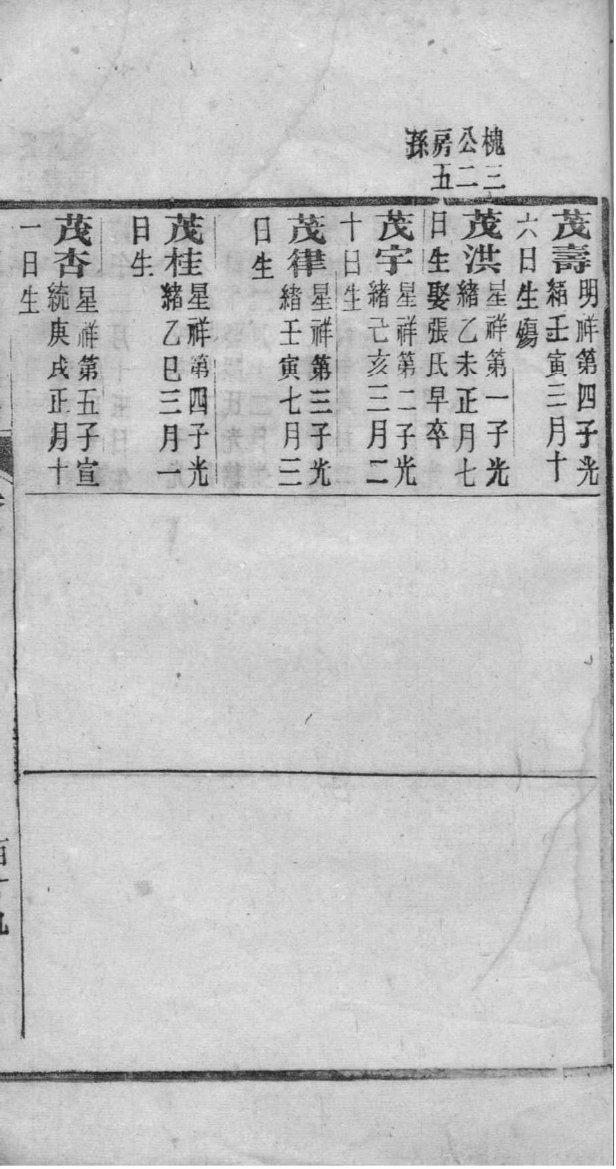 槐三
公二
房五
孫
茂壽
明祥第四子光
緒壬寅三月十
六日生殤
茂洪
星祥第一子光
緒乙未正月七
日生娶張氏早卒
茂宇
星祥第二子光
緒己亥三月二
十日生
茂律
星祥第三子光
緒壬寅七月三
日生
茂桂
星祥第四子光
緒乙巳三月一
日生
茂杏
星祥第五子宣
統庚戌正月十
一日生